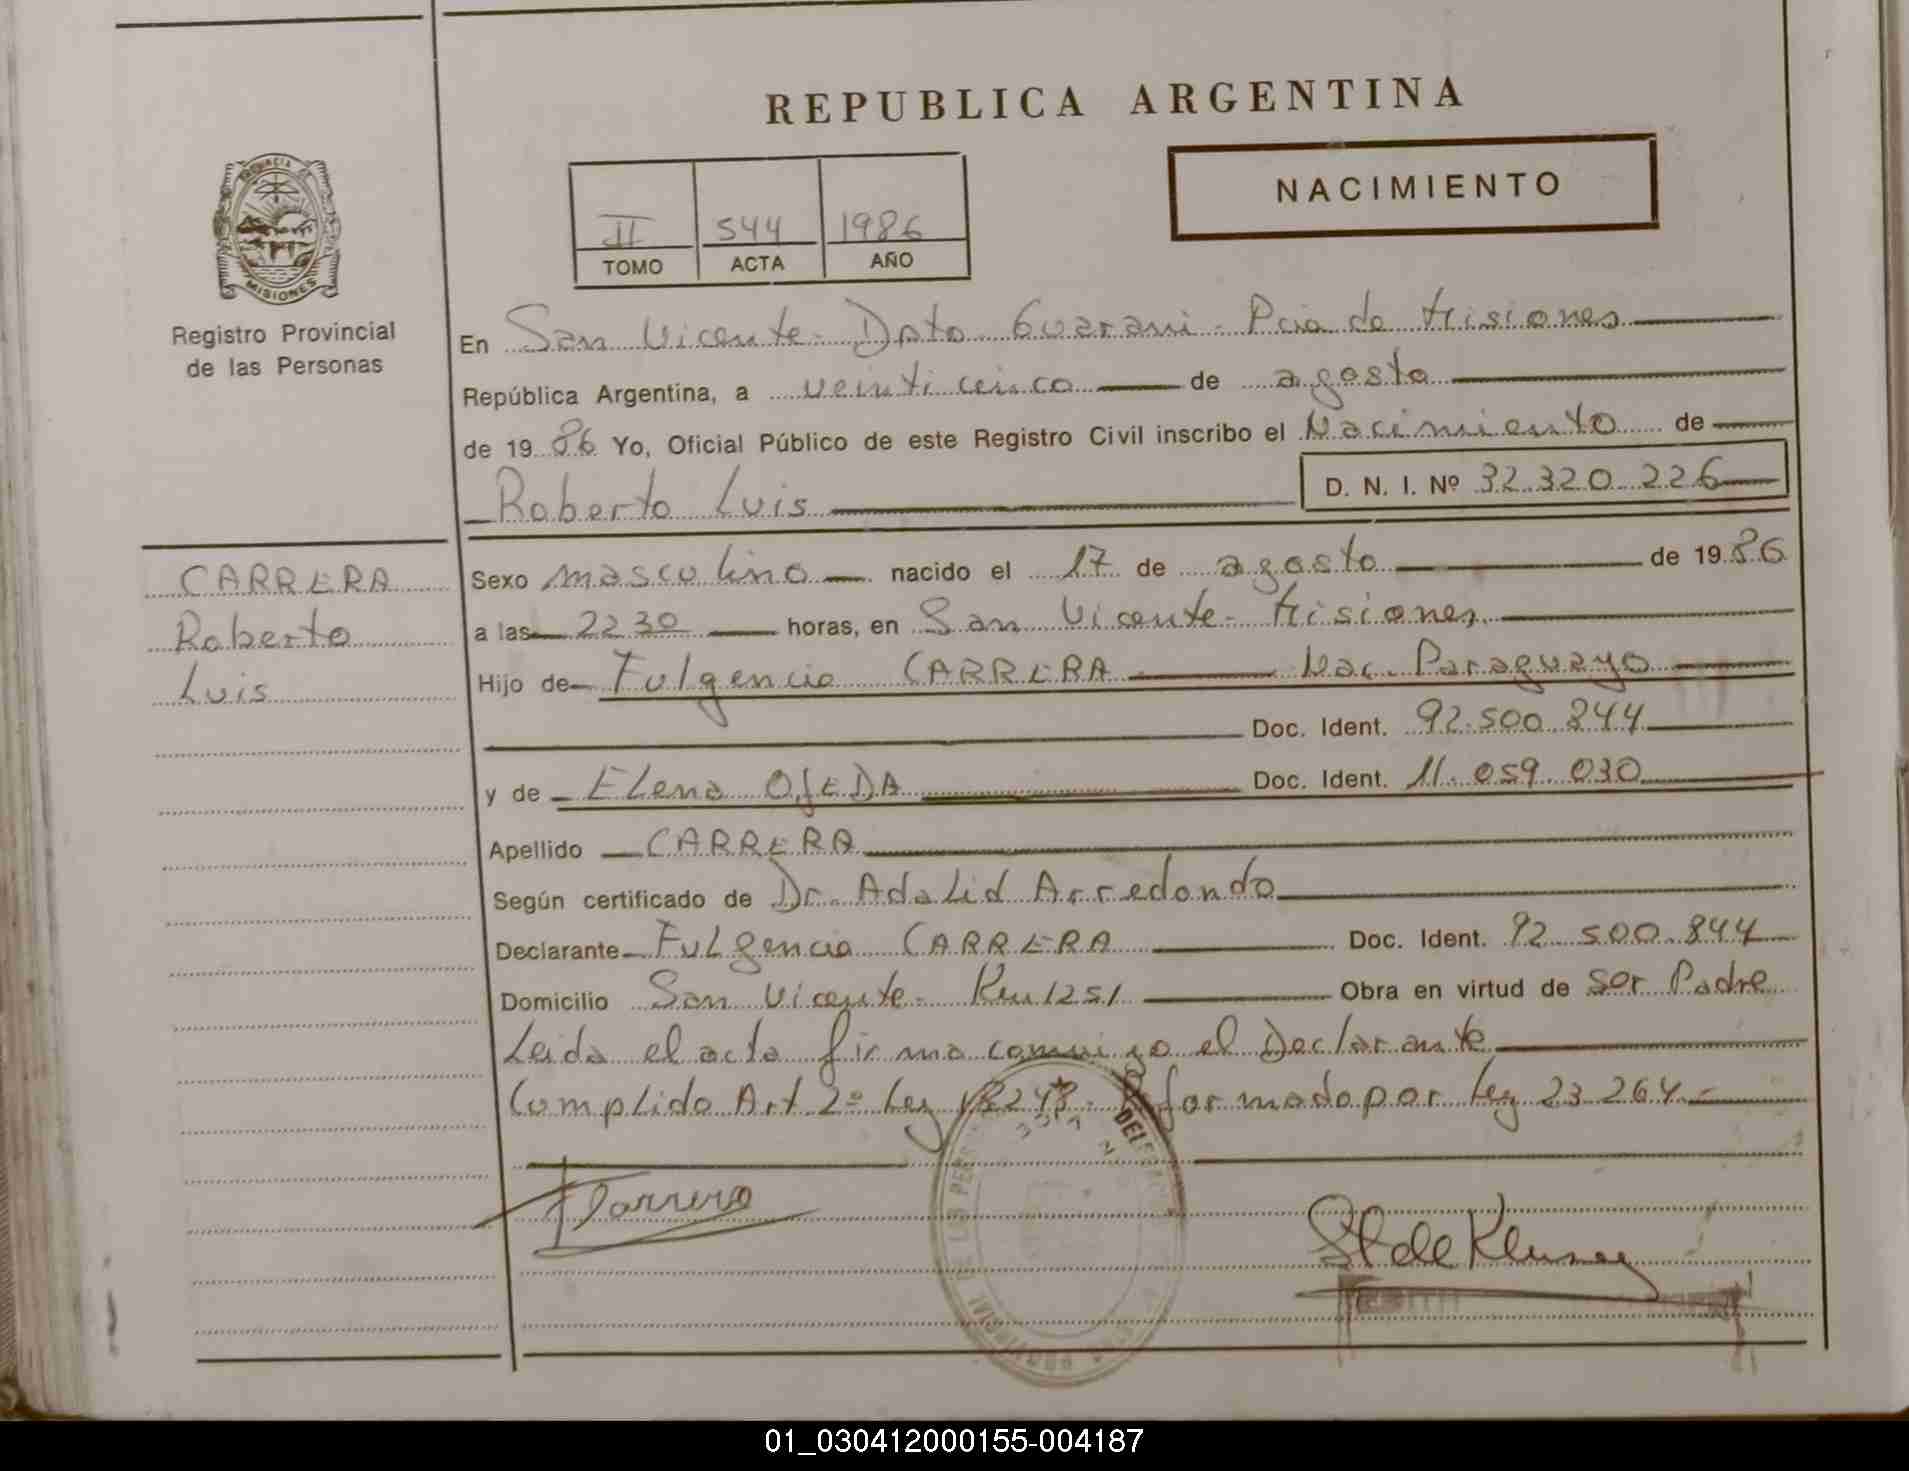 REPUBLICA ARGENTINA
NACIMIENTO
PROVINCIA DE
MISIONES
Registro Provincial
de las Personas
II 544 1986
TOMO ACTA AÑO
En San Vicente - Dpto Guarani - Pcia de Misiones
República Argentina, a veinticinco de agosto
de 1986 Yo, Oficial Público de este Registro Civil inscribo el Nacimiento de
Roberto Luis D. N. I. Nº 32.320.226
CARRERA
Roberto
Luis
Sexo masculino nacido el 17 de agosto de 1986
a las 22 30 horas, en San Vicente - Misiones
Hijo de Fulgencio CARRERA Nac. Paraguayo
Doc. Ident. 92.500.844
y de Elena OJEDA Doc. Ident. 11.059.030
Apellido CARRERA
Según certificado de Dr. Adalid Arredondo
Declarante Fulgencio CARRERA Doc. Ident. 92.500.844
Domicilio San Vicente - Km 1251 Obra en virtud de ser Padre
Leida el acta firma conmigo el Declarante
Cumplido Art 2º Ley 18248 - Reformado por Ley 23.264.-
FCarrera
01_030412000155-004187